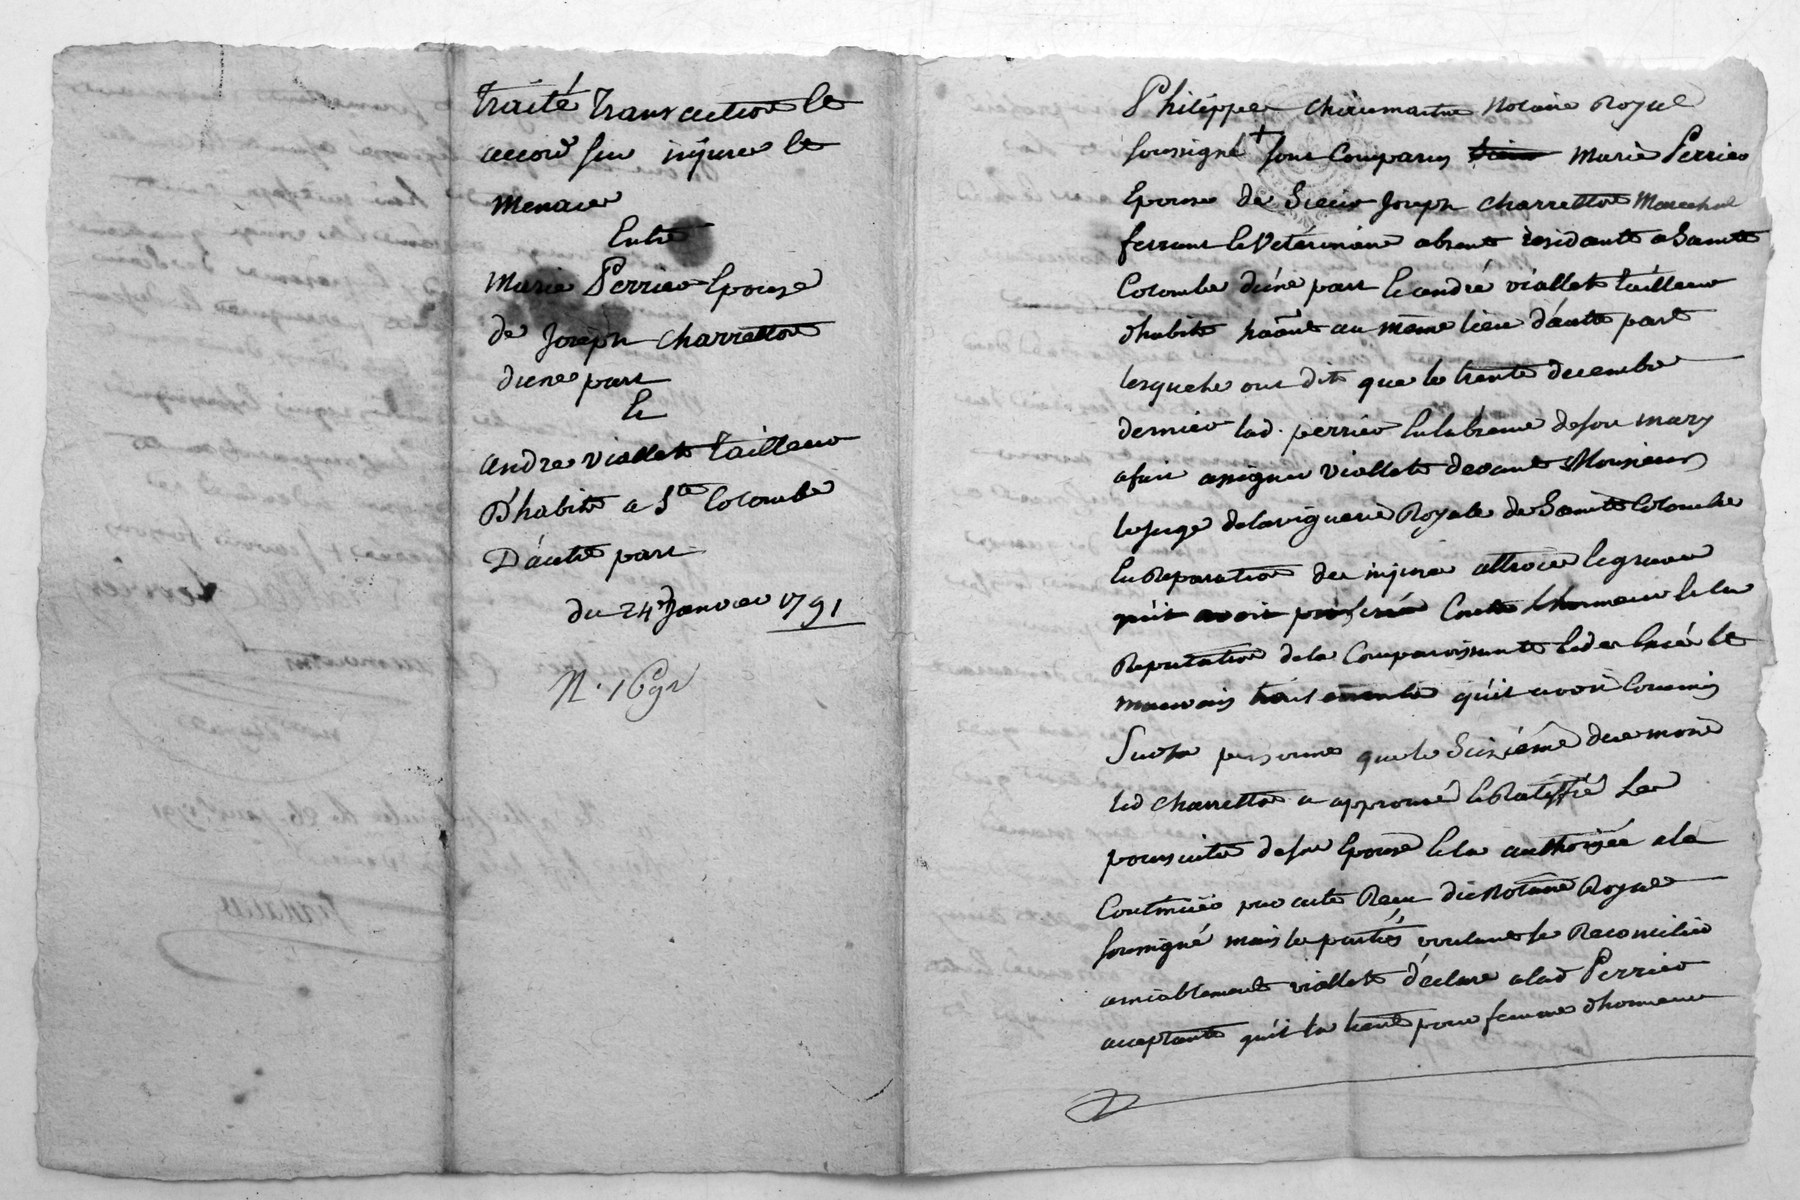 traité transaction Et
accord sur injures Et
Menaces
Entre
Marie Perrier Epouse
de Joseph Charretton
d'une part
Et
andré Viallet tailleur
D'habits a Ste Colombe
D'autre part
du 24e Janvier 1791
N. 169
Philippe Notaire Royal
soussigné + sont Comparus Marie Perrier
Epouse de Sieur Joseph Charretton Marechal
ferrant Et Vétérinaire absent residante a Sainte
Colombe d'une part Et andré viallet tailleur
d'habits au même lieu d'autre part
lesquels ont dit que le trente decembre
dernier lad. perrier En labsence de son mary
a fait assigner Viallet devant Monsieur
le juge de la viguerie Royale de Sainte Colombe
En Reparation des injures attroces Et graves
qu'il avoit proferées Contre Lhonneur Et la
Reputation de la Comparoissante Et des Excés Et
mauvais traitements qu'il avoit Commis
Sur sa personne que le Seizième du mois
led Charretton a approuvé Et Ratiffié Les
poursuites de son Epouse Et la authorisée a les
Continuer par acte Recu du Notaire Royal
soussigné mais les parties voulant se Reconcilier
amiablement viallet déclare a lad Perrier
acceptante qu'il la tient pour femme d'honneur